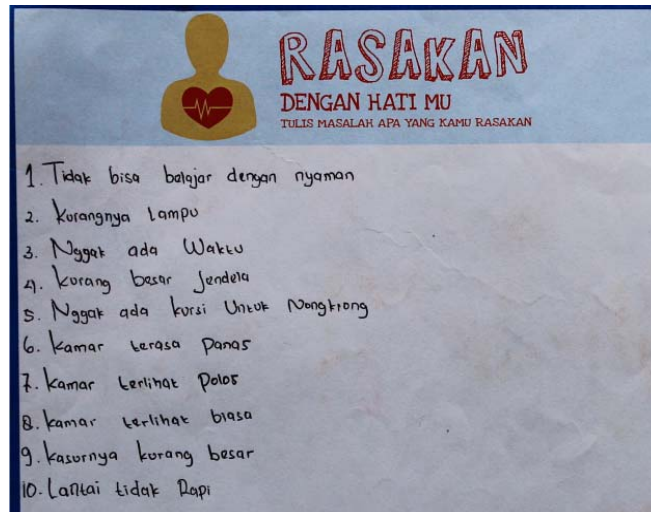 RASAKAN
DENGAN HATI MU
TULIS MASALAH APA YANG KAMU RASAKAN
1. Tidak bisa belajar dengan nyaman
2. Kurangnya Lampu
3. Nggak ada Waktu
4. Kurang besar Jendela
5. Nggak ada kursi Untuk Nongkrong
6. Kamar terasa Panas
7. Kamar terlihat Polos
8. Kamar terlihat biasa
9. Kasurnya kurang besar
10. Lantai tidak Rapi